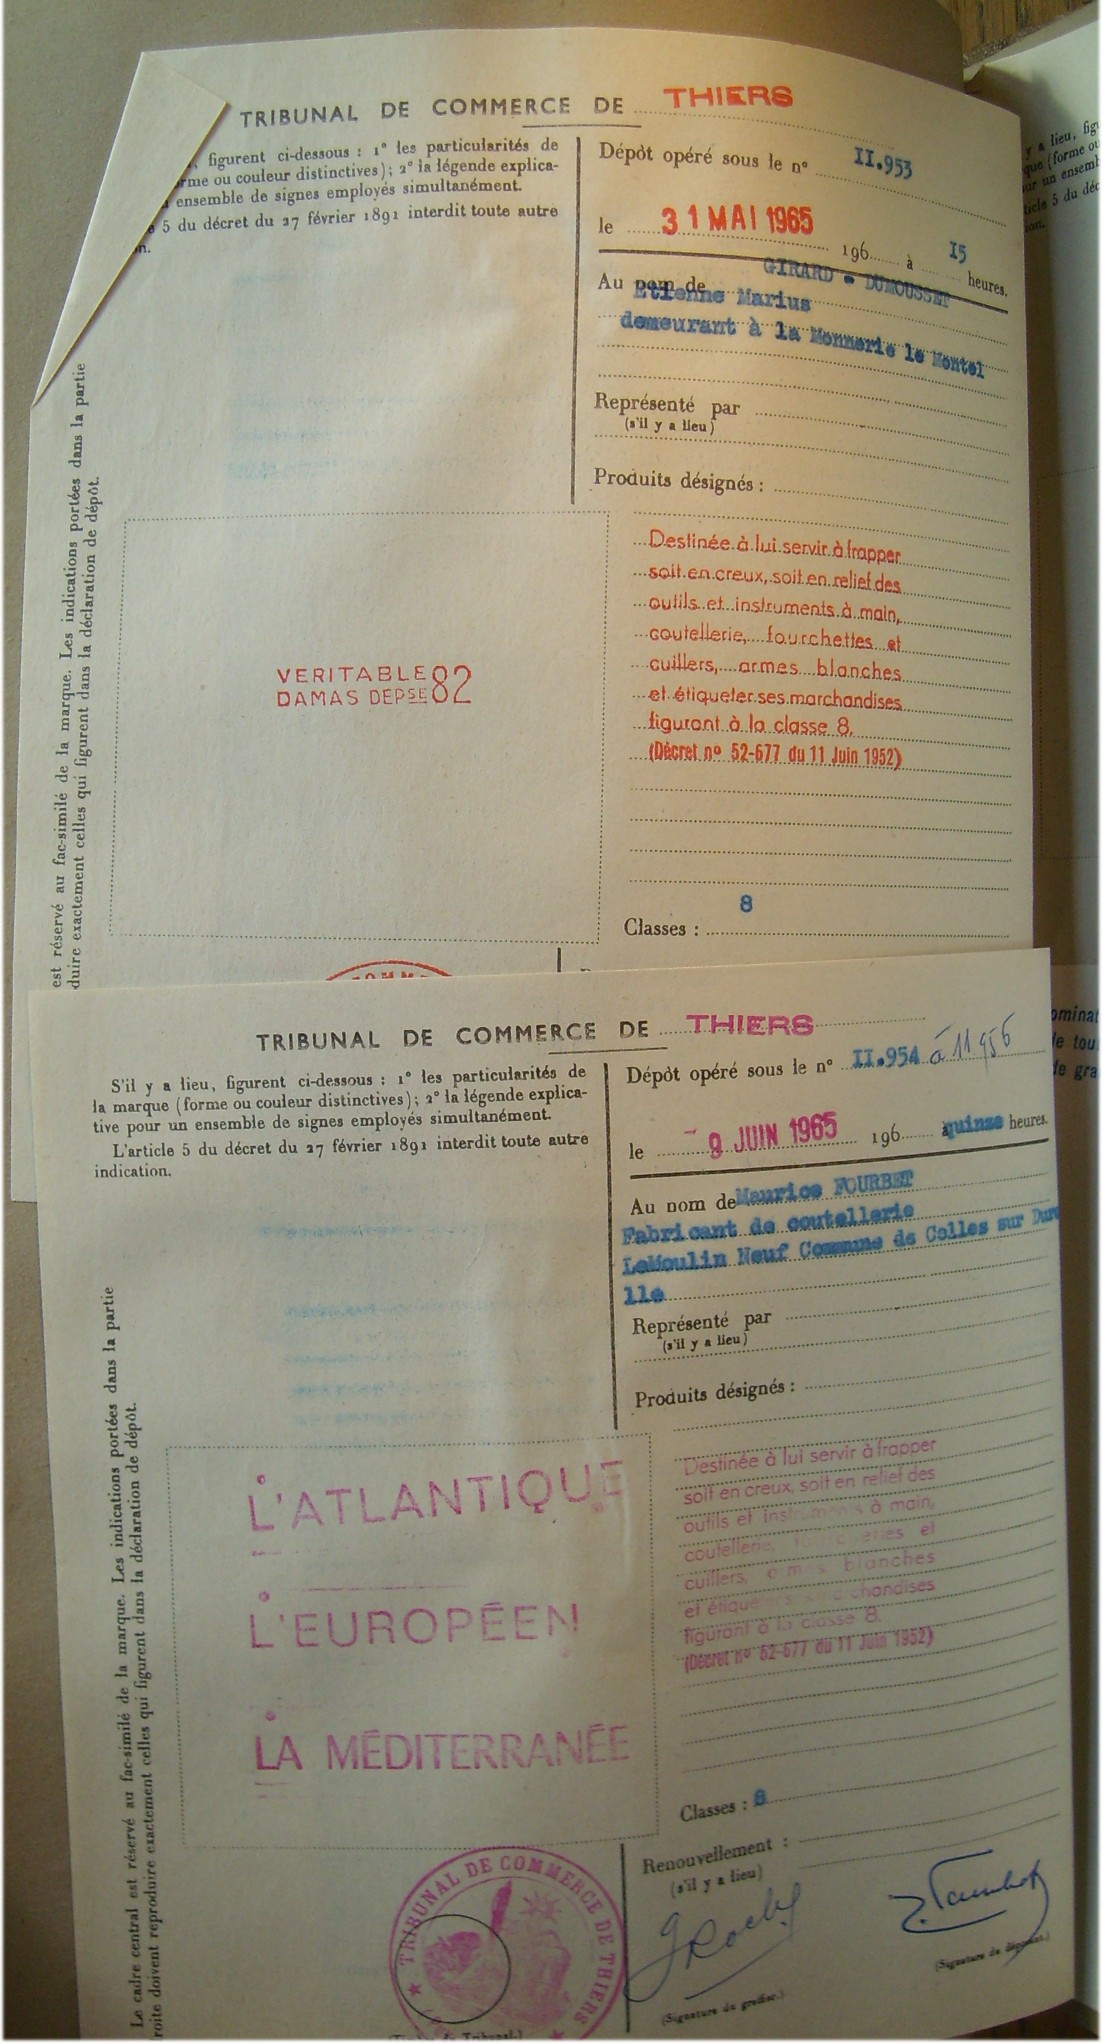 TRIBUNAL DE COMMERCE DE THIERS
figurent ci-dessous : 1° les particularités de
ou couleur distinctives); 2° la légende explica-
ensemble de signes employés simultanément.
5 du décret du 27 février 1891 interdit toute autre
Dépôt opéré sous le n° II.953
le 31 MAI 1965 196 à 15 heures.
Au nom de GIRARD - DUMOUSSET
Etienne Marius
demeurant à la Monnerie le Montel
Représenté par
(s'il y a lieu)
Produits désignés :
Destinée à lui servir à frapper
soit en creux, soit en relief des
outils et instruments à main,
coutellerie, fourchettes et
cuillers, armes blanches
et étiqueter ses marchandises
figurant à la classe 8.
(Décret n° 52-677 du 11 Juin 1952)
VERITABLE 82
DAMAS DEPSE
Classes : 8
est réservé au fac-similé de la marque. Les indications portées dans la partie
duire exactement celles qui figurent dans la déclaration de dépôt.
TRIBUNAL DE COMMERCE DE THIERS
S'il y a lieu, figurent ci-dessous : 1° les particularités de
la marque (forme ou couleur distinctives); 2° la légende explica-
tive pour un ensemble de signes employés simultanément.
L'article 5 du décret du 27 février 1891 interdit toute autre
indication.
Dépôt opéré sous le n° II.954 à 11956
le - 9 JUIN 1965 196 à quinze heures.
Au nom de Maurice FOURBET
Fabricant de coutellerie
LeMoulin Neuf Commune de Celles sur Duro
lle
Représenté par
(s'il y a lieu)
Produits désignés :
Destinée à lui servir à frapper
soit en creux, soit en relief des
outils et instruments à main,
coutellerie, et
cuillers, armes blanches
et marchandises
figurant à la classe 8.
(Décret n° 52-677 du 11 Juin 1952)
L'ATLANTIQUE
L'EUROPÉEN
LA MÉDITERRANÉE
Classes : 8
Renouvellement :
(s'il y a lieu)
TRIBUNAL DE COMMERCE DE THIERS
(Signature du greffier.)
(Signature du déposant.)
Le cadre central est réservé au fac-similé de la marque. Les indications portées dans la partie
roite doivent reproduire exactement celles qui figurent dans la déclaration de dépôt.